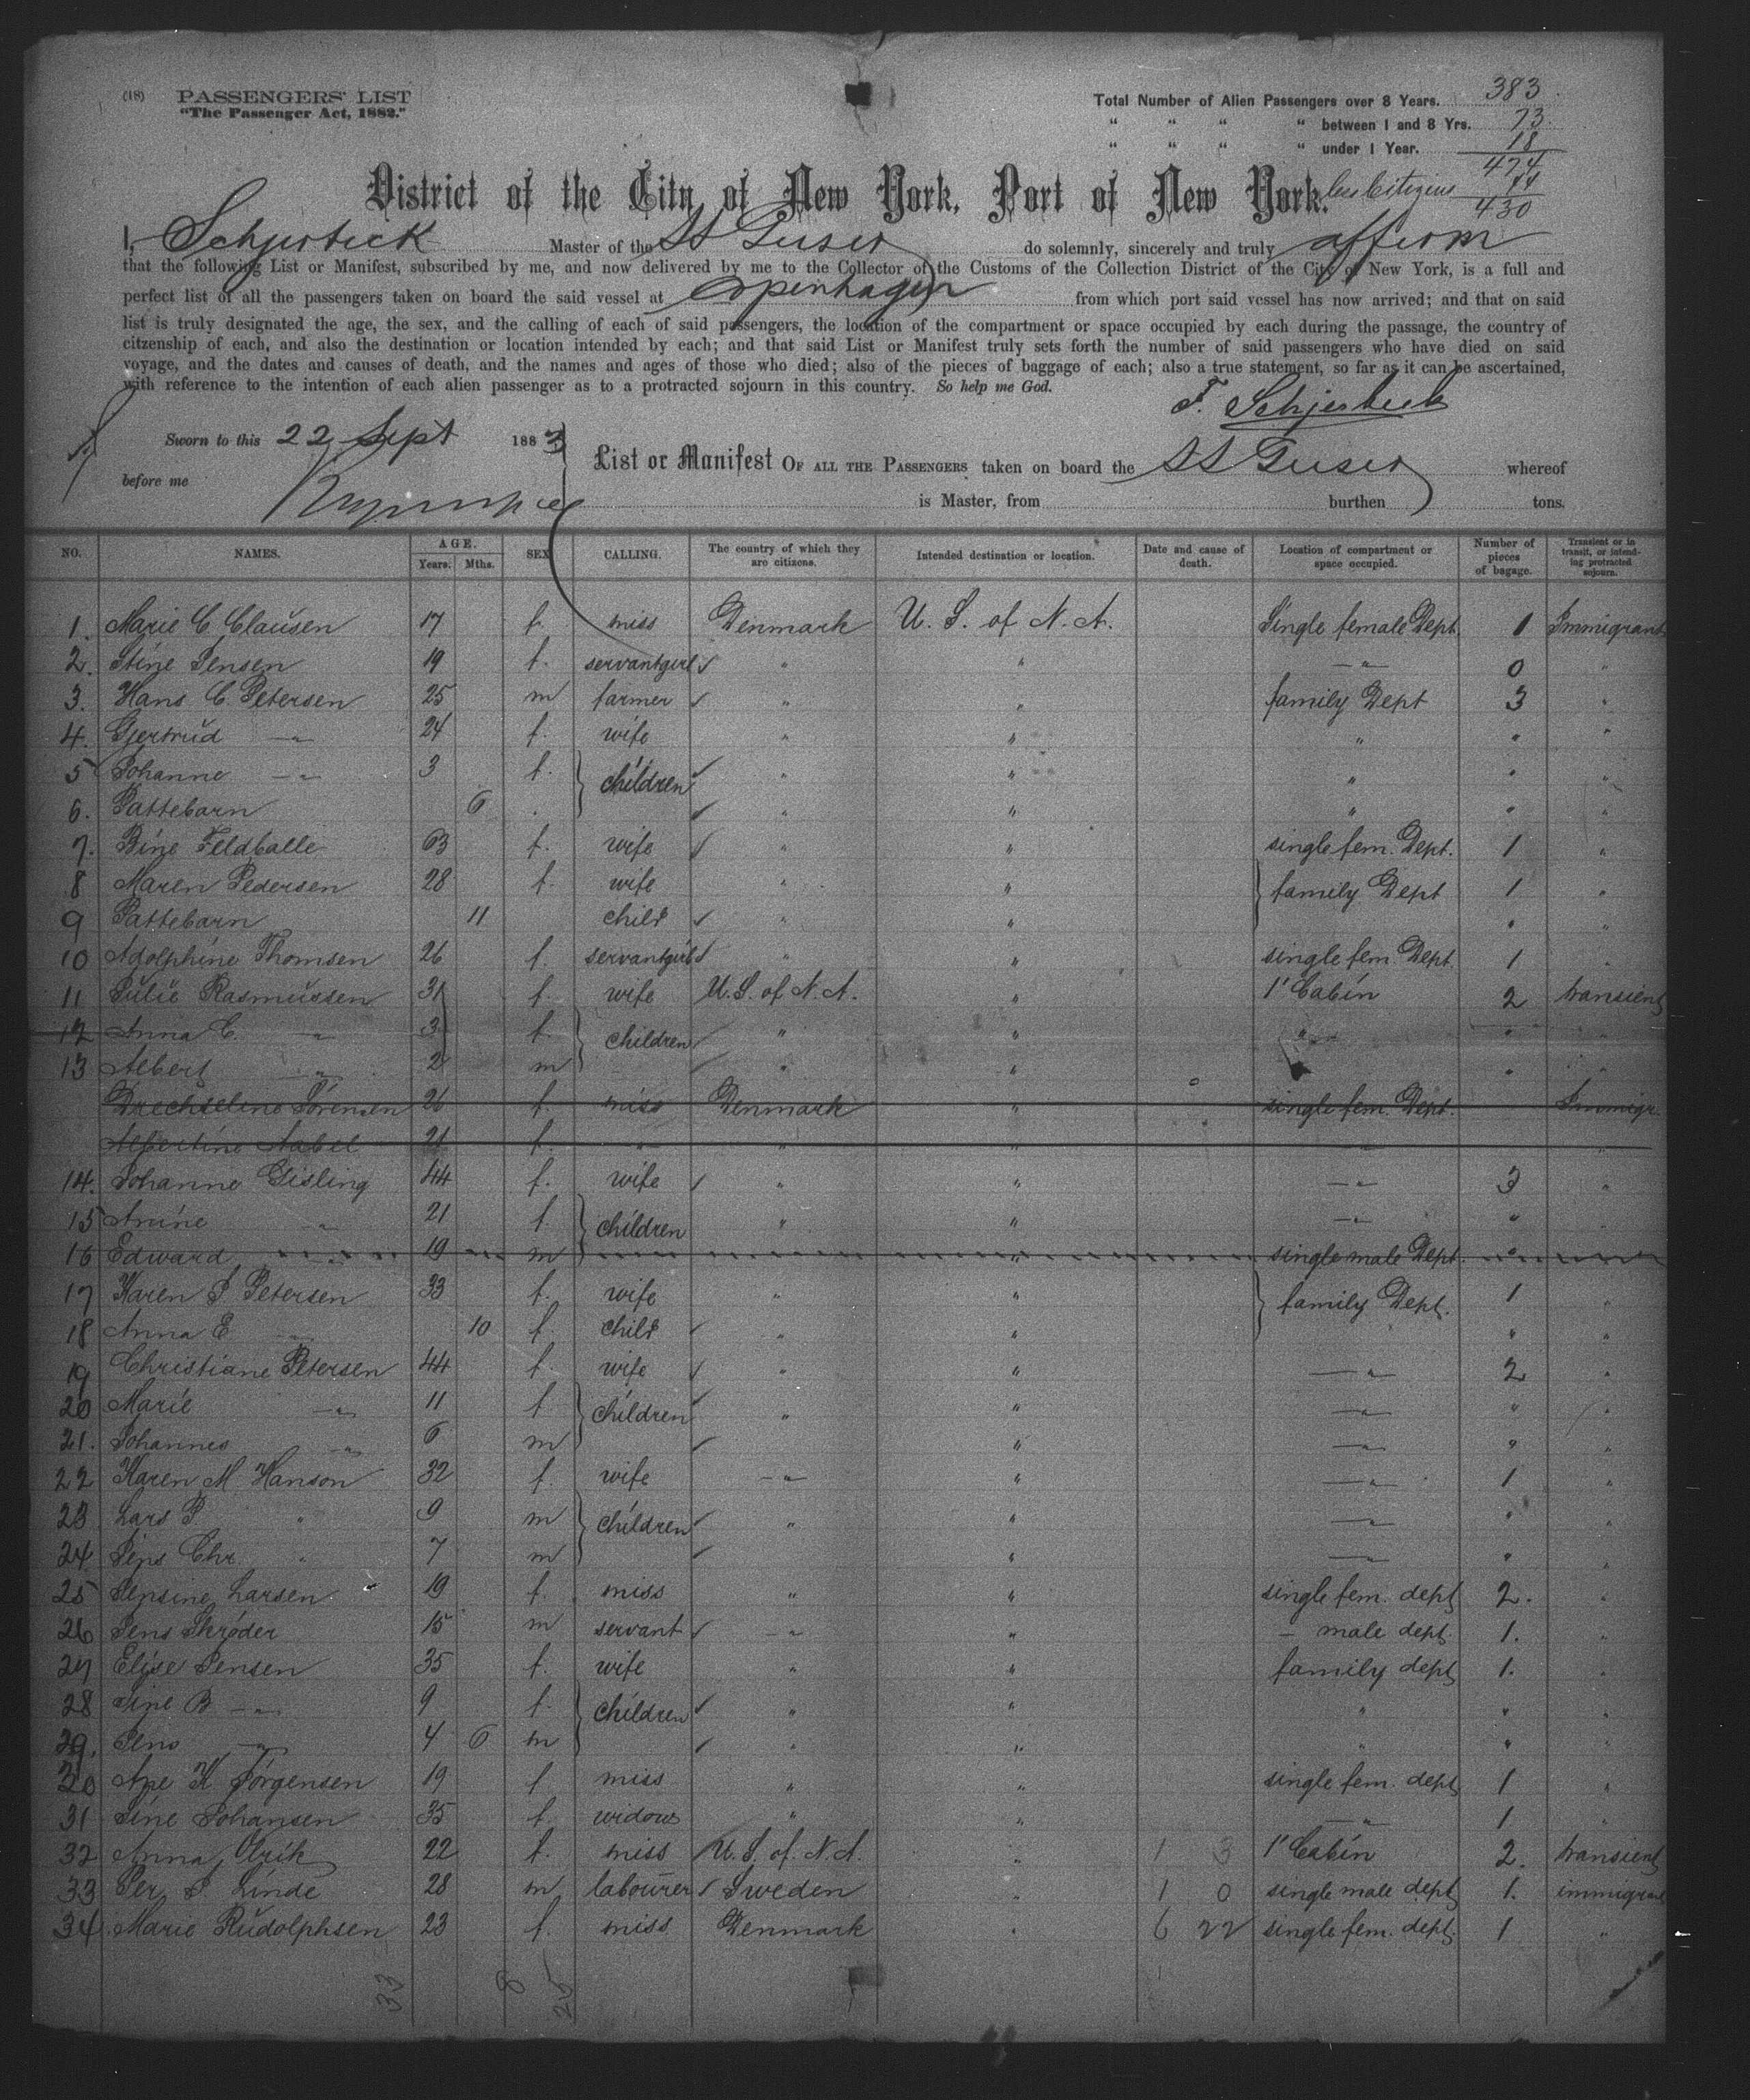 (18) PASSENGERS' LIST
"The Passenger Act, 1882."
Total Number of Alien Passengers over 8 Years. 383
" " " " between 1 and 8 Yrs. 73.
" " " " under 1 Year. 18
474
Less Citizens 44
430
District of the City of New York, Port of New York.
I, Schjerbeck Master of the SS Geiser do solemnly, sincerely and truly affirm
that the following List or Manifest, subscribed by me, and now delivered by me to the Collector of the Customs of the Collection District of the City of New York, is a full and
perfect list of all the passengers taken on board the said vessel at Copenhagen from which port said vessel has now arrived; and that on said
list is truly designated the age, the sex, and the calling of each of said passengers, the location of the compartment or space occupied by each during the passage, the country of
citzenship of each, and also the destination or location intended by each; and that said List or Manifest truly sets forth the number of said passengers who have died on said
voyage, and the dates and causes of death, and the names and ages of those who died; also of the pieces of baggage of each; also a true statement, so far as it can be ascertained,
with reference to the intention of each alien passenger as to a protracted sojourn in this country. So help me God.
F. Schjerbeck
Sworn to this 22 Sept 1883
before me
List or Manifest OF ALL THE PASSENGERS taken on board the SS Geiser whereof
is Master, from burthen tons.
NO. NAMES. AGE. Years. Mths. SEX CALLING. The country of which they are citizens. Intended destination or location. Date and cause of death. Location of compartment or space occupied. Number of pieces of bagage. Transient or in transit, or intending protracted sojourn.
1. Marie C Clausen 17 f. miss Denmark U. S. of N. A. Single female Dept. 1 Immigrant
2. Stine Jensen 19 f. servantgirl " " —"— 0 "
3. Hans C. Petersen 25 m farmer " " family Dept 3 "
4. Gjertrud —"— 24 f. wife " " " " "
5 Johanne —"— 3 f. children " " " " "
6. Pattebarn 6 . " " " " "
7. Bine Feldballe 63 f. wife " " single fem. Dept. 1 "
8 Maren Pedersen 28 f. wife " " family Dept 1 "
9 Pattebarn 11 child " " " "
10 Adolphine Thomsen 26 f. servantgirl " " single fem. Dept. 1 "
11 Julie Rasmussen 31 f. wife U.S. of N.A. " 1' Cabin 2 transient
12 Anna C. —"— 3 f. children " " " " "
13 Albert —"— 2 m " " " "
Drechseline Sörensen 26 f. miss Denmark " single fem. Dept. Immigr
Albertine Nabel 21 f. —"— " " —"— "
14. Johanne Gisling 44 f. wife " " —"— 3 "
15 Arnine —"— 21 f. children " " —"— "
16 Edward —"— 19 m " single male Dept. "
17 Karen S Petersen 33 f. wife " " family Dept. 1 "
18 Anna E —"— 10 f. child " " " "
19 Christiane Petersen 44 f. wife " " —"— 2 "
20 Marie —"— 11 f. children " " —"— " "
21. Johannes —"— 6 m " —"— " "
22 Karen M Hanson 32 f. wife —"— " —"— 1 "
23 Lars P " 9 m children " " —"— " "
24 Jens Chr. " 7 m " —"— " "
25 Jensine Larsen 19 f. miss " " single fem. dept 2. "
26 Jens Skröder 15 m servant —"— " — male dept. 1. "
27 Elise Jensen 35 f. wife " " family dept 1. "
28 Sine B —"— 9 f. children " " " " "
29. Jens —"— 4 6 m " " " " "
30 Ane K Jörgensen 19 f. miss " " single fem. dept 1 "
31 Sine Johansen 35 f. widow " " —"— 1 "
32 Anna Ulrik 22 f. miss U. S. of N. A. " 1 3 1' Cabin 2. transient
33 Per S. Linde 28 m labourer Sweden " 1 0 single male dept 1. immigrant
34 Marie Rudolphsen 23 f. miss Denmark " 6 22 single fem. dept. 1 "
33 8 25